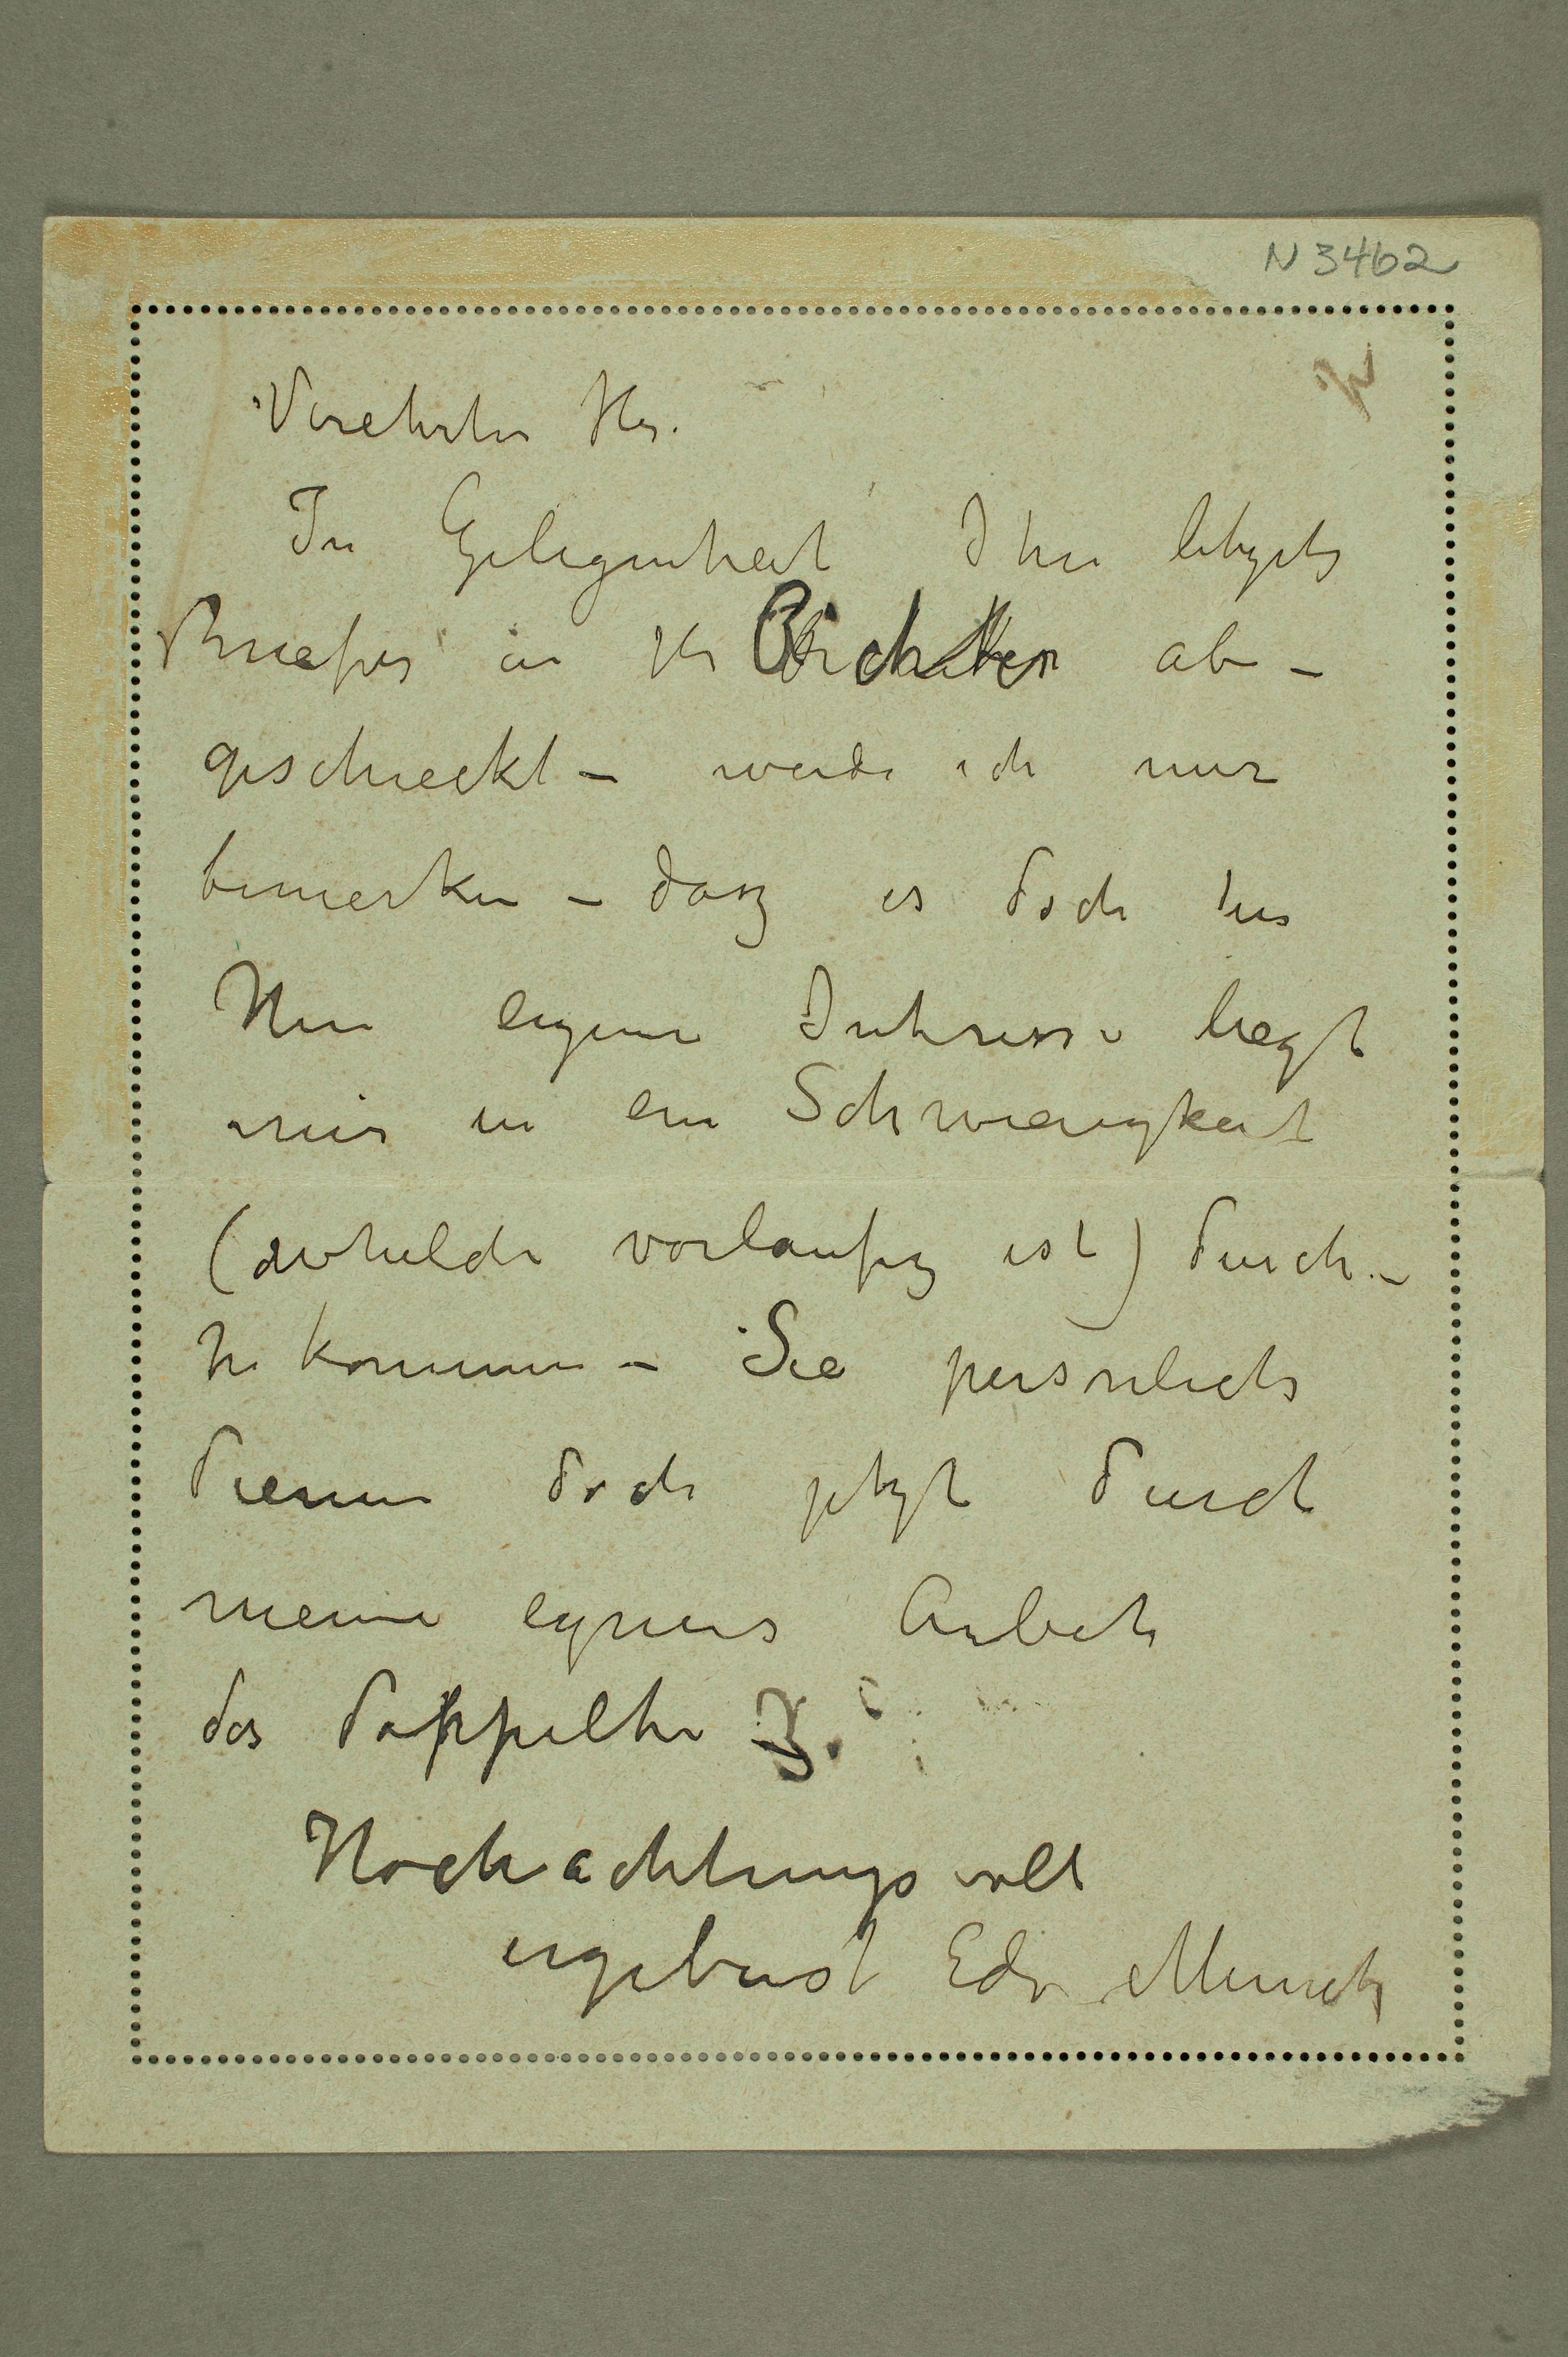 N 3462
Verehrter Hr.
In Gelegenheit Ihres letzten
Briefes an Hr Richter ab –
geschreckt – werde ich nur
bemerken – dasz es doch
Ihren eigene Interesse liegt
mir in ein Schwierigkeit
vorlaufig ist) durch –
zu kommen – Sie personlich
dienen doch jetzt durch
meine eigenes Arbeit
das doppelte
Hochachtungsvoll
ergebenst Edv. Munch